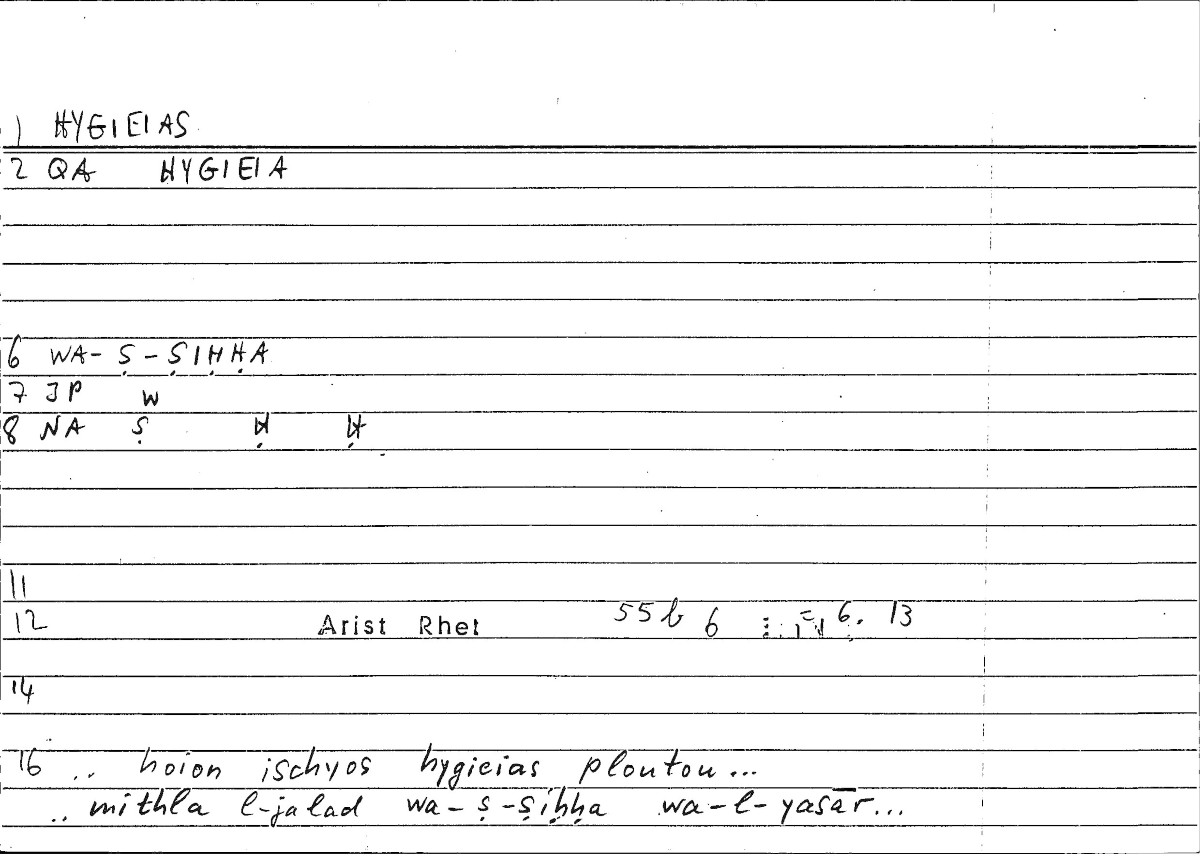 1 HYGIEIAS
2 QA HYGIEIA
6 WA-Ṣ-ṢIḤḤA
7 JP W
8 NA Ṣ Ḥ Ḥ
11
12 Arist Rhet 55b 6 6. 13
14
16 .. hoion ischyos hygieias ploutou...
.. mithla l-jalad wa-ṣ-ṣiḥḥa wa-l-yasār...